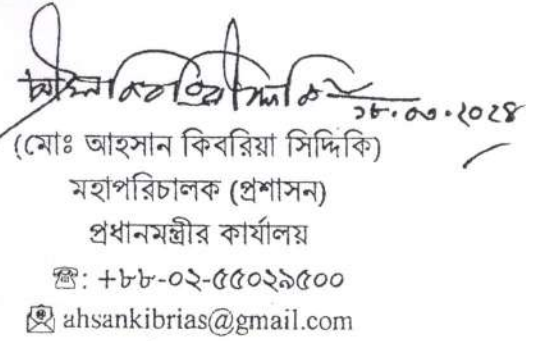 আহসান কিবরিয়া সিদ্দিকি
১৮.০৩.২০২৪
(মোঃ আহসান কিবরিয়া সিদ্দিকি)
মহাপরিচালক (প্রশাসন)
প্রধানমন্ত্রীর কার্যালয়
☎: +৮৮-০২-৫৫০২৯৫০০
ahsankibrias@gmail.com